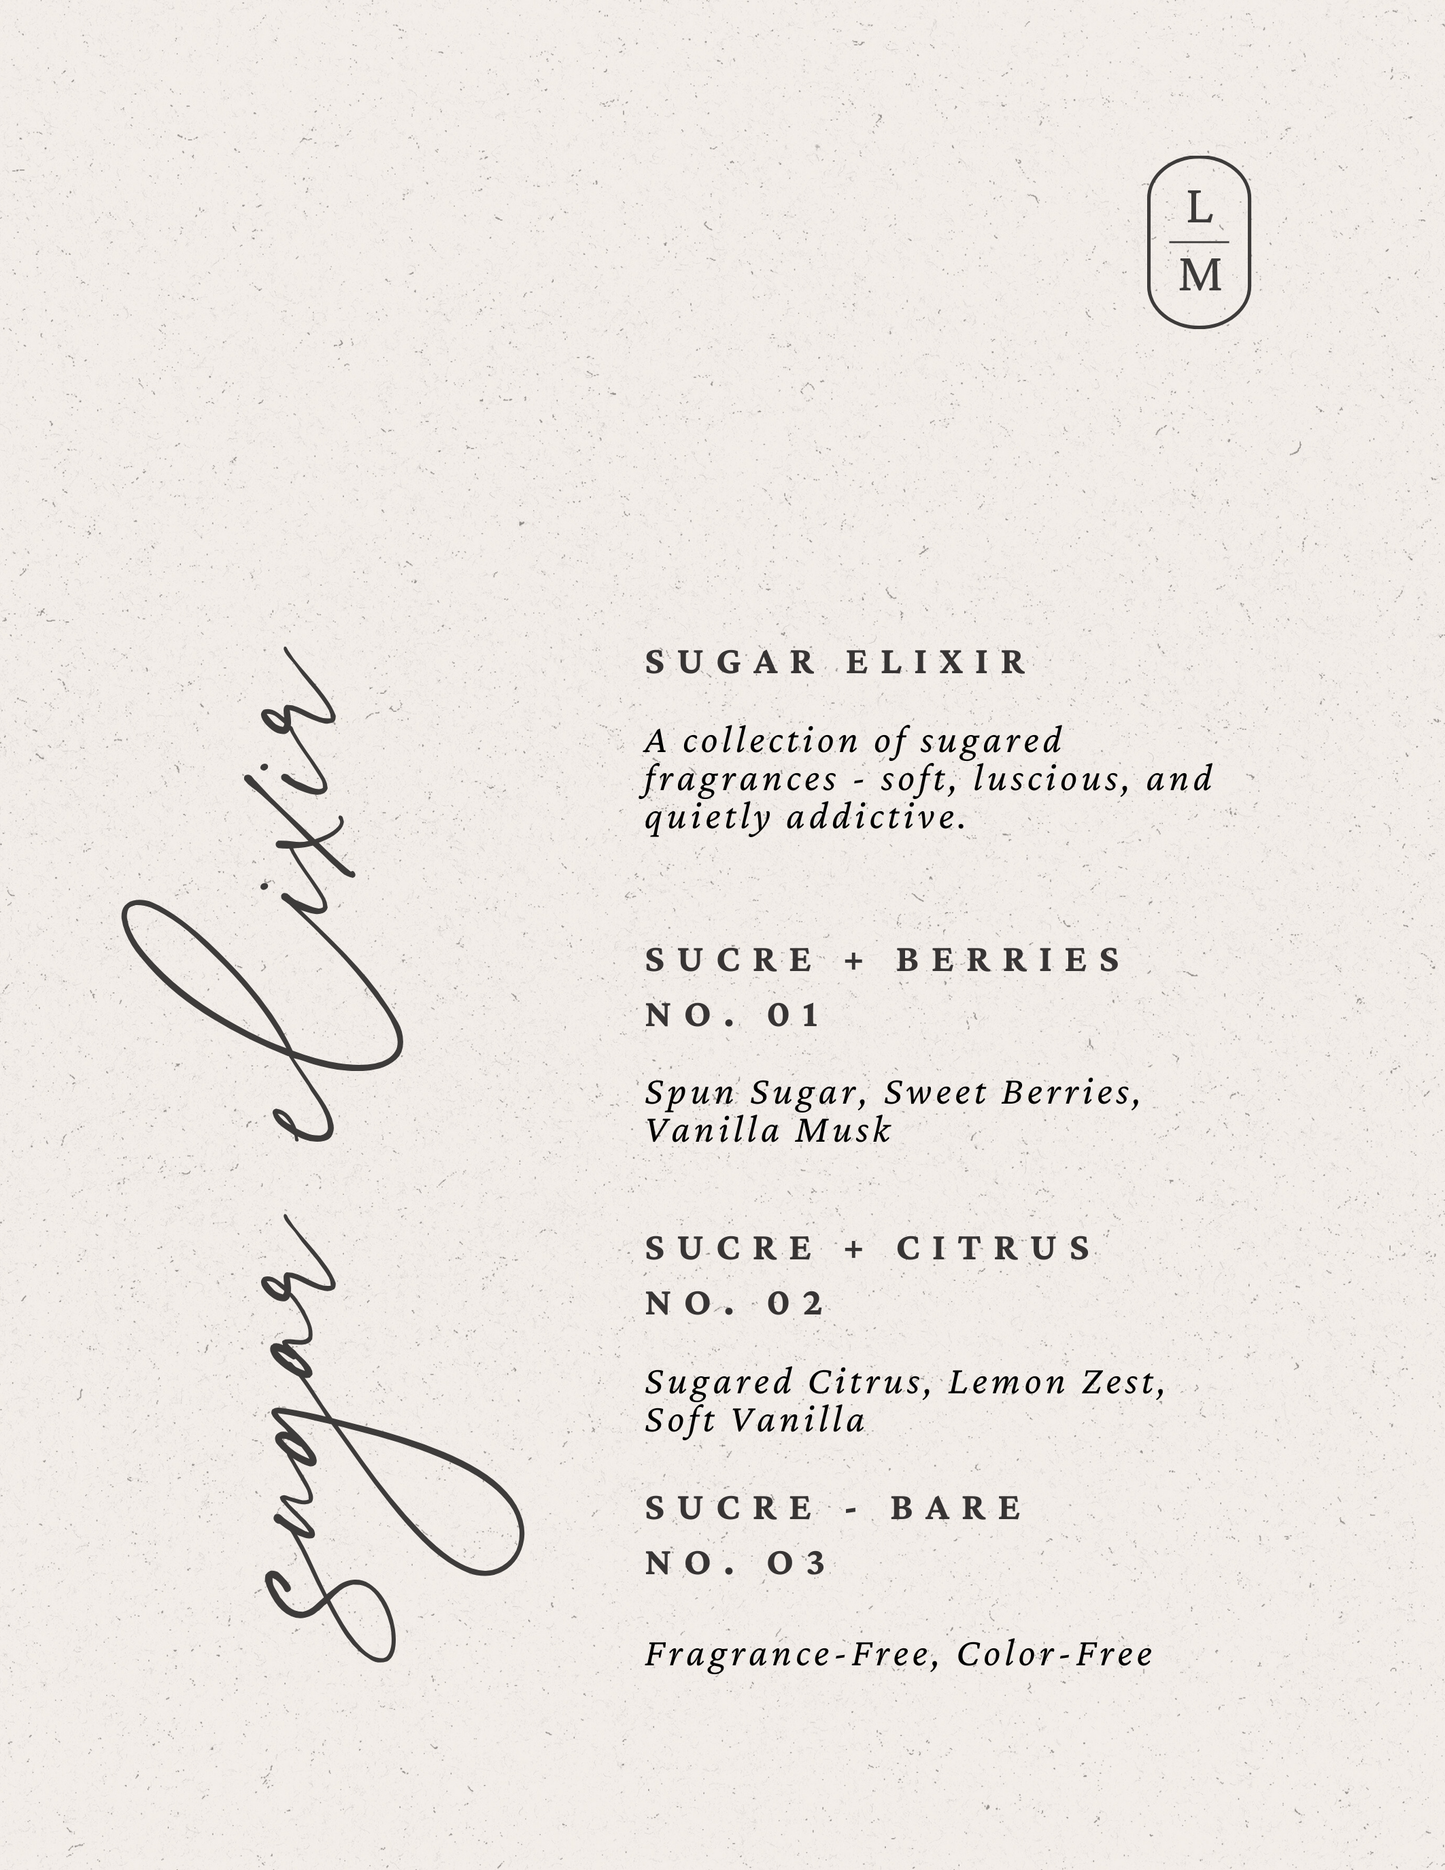 L
M
sugar elixir
SUGAR ELIXIR
A collection of sugared
fragrances - soft, luscious, and
quietly addictive.
SUCRE + BERRIES
NO. 01
Spun Sugar, Sweet Berries,
Vanilla Musk
SUCRE + CITRUS
NO. 02
Sugared Citrus, Lemon Zest,
Soft Vanilla
SUCRE - BARE
NO. O3
Fragrance-Free, Color-Free